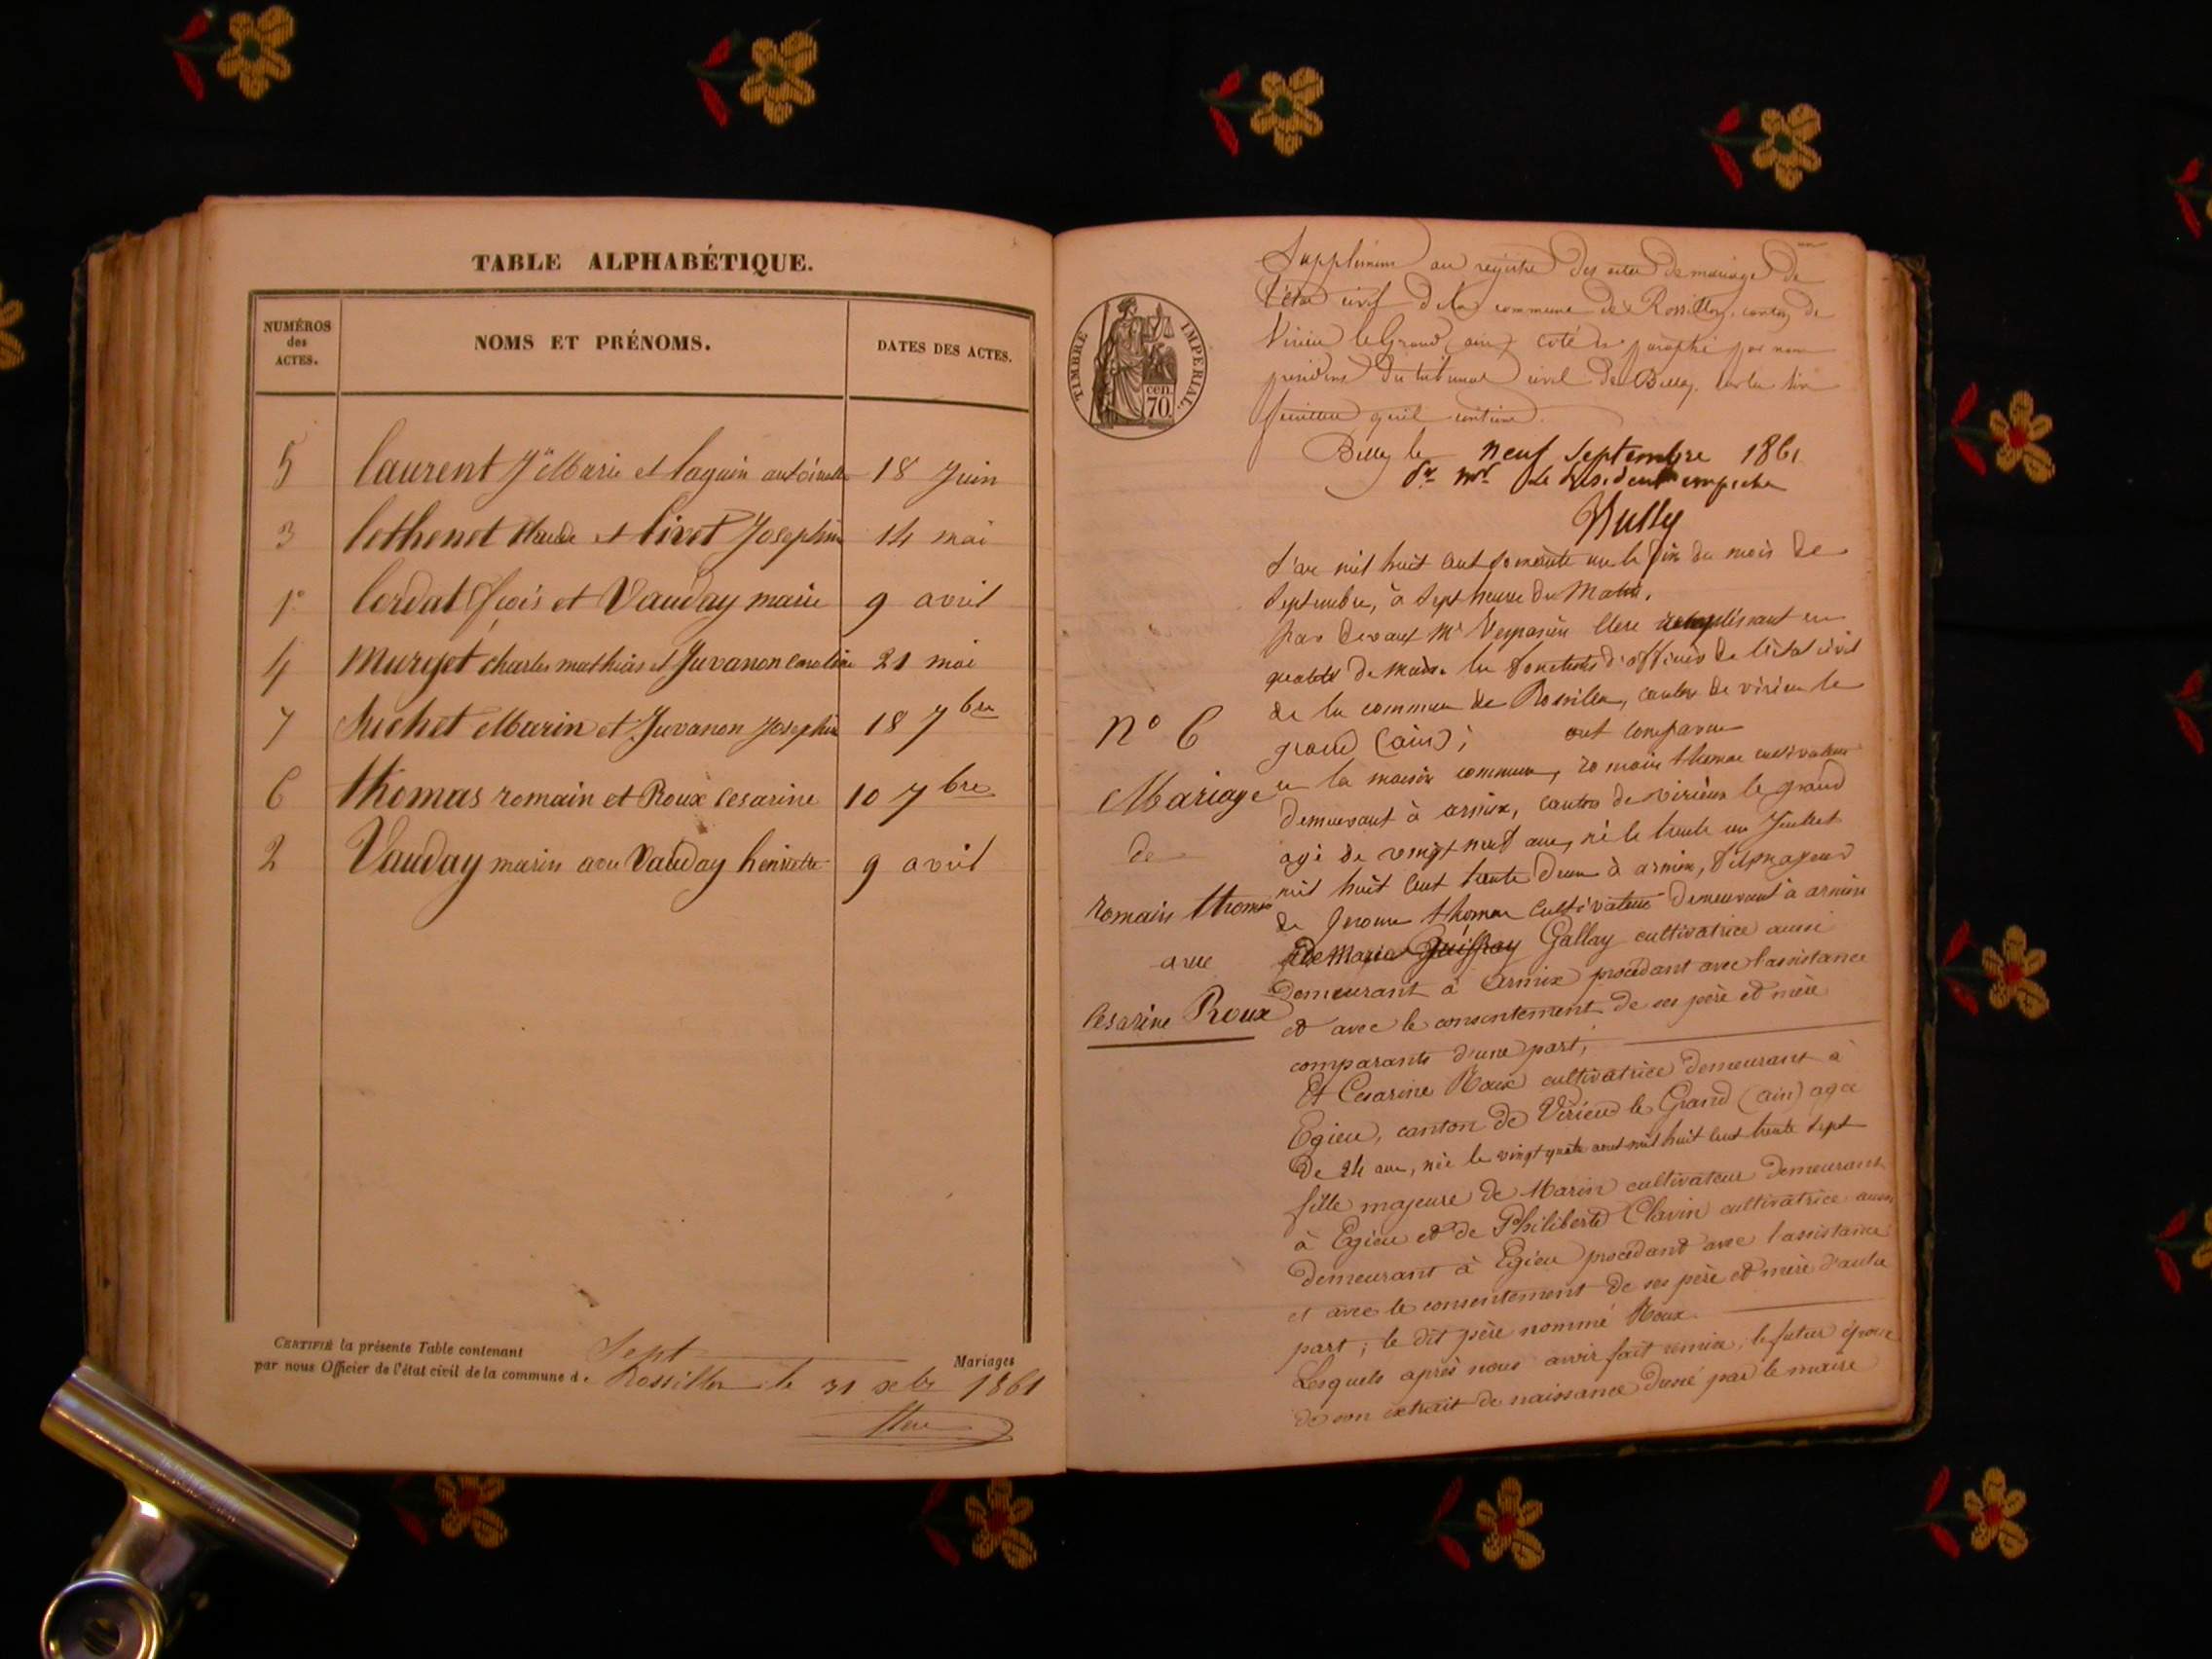 TABLE ALPHABÉTIQUE.
NUMÉROS des ACTES. NOMS ET PRÉNOMS. DATES DES ACTES.
5 laurent Marie et laguin 18 Juin
3 et livet Josephine 14 mai
1º lordat et Vauday marie 9 avril
4 murget charles mathias et Juvanon Caroline 21 mai
7 Marin et Juvanon Josephine 18 7bre
6 thomas romain et Roux Cesarine 10 7bre
2 Vauday marin avec Vauday henriette 9 avril
CERTIFIÉ la présente Table contenant Sept Mariages
par nous Officier de l'état civil de la commune de Rossillon le 31 1861
TIMBRE IMPERIAL.
70 cen.
Supplément au registre des actes de mariage de
l'état civil de la commune de Rossillon, canton de
Virieu le Grand (ain) coté et paraphé par nous
président du tribunal civil de Belley, sur les
qu'il contient.
Belley le neuf Septembre 1861
Le Président empeché
L'an mil huit cent soixante un le dix du mois de
Septembre, à Sept heures du Matin,
par devant Mr Vespasien remplissant en
qualité de Maire les fonctions d'officier de l'état civil
de la commune de Rossillon, canton de virieu le
grand (ain); ont comparu
Nº 6
Mariage
de
romain thomas
avec
Cesarine Roux
en la maison commune, romain thomas cultivateur
demeurant à armix, canton de virieux le grand
agé de vingt neuf ans, né le trente un Juillet
mil huit cent trente deux à armix, fils majeur
de thomas cultivateur demeurant à armix
Gallay cultivatrice aussi
demeurant à armix procédant avec l'assistance
et avec le consentement de ses père et mère
comparants d'une part,
Et Cesarine Roux cultivatrice demeurant à
Egieu, canton de Virieu le Grand (ain) agée
de 24 ans, née le vingt quatre aout mil huit cent trente sept
fille majeure de Marin cultivateur demeurant
à Egieu et de Philiberte Clavin cultivatrice aussi
demeurant à Egieu procédant avec l'assistance
et avec le consentement de ses père et mère d'autre
part; le dit père nommé Roux.
Lesquels après nous avoir fait remise, le futur époux
de son extrait de naissance par le maire